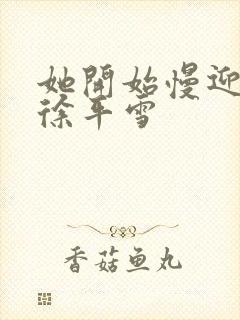 她開始慢迎
徐平雪
香菇鱼丸